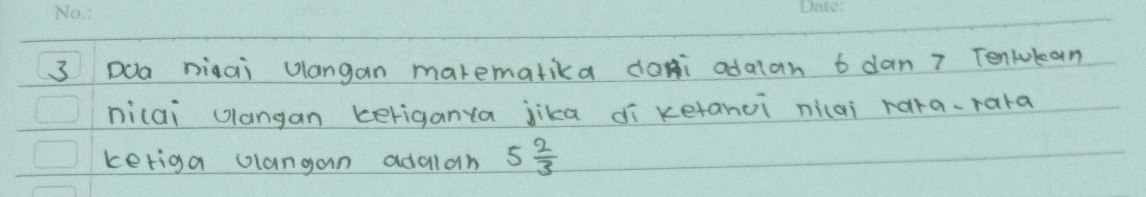 No.:
Date:
3 Dua nilai ulangan matematika doni adalah 6 dan 7 Tentukan
nilai ulangan ketiganya jika di ketahui nilai rata-rata
ketiga ulangan adalah 5 2/3